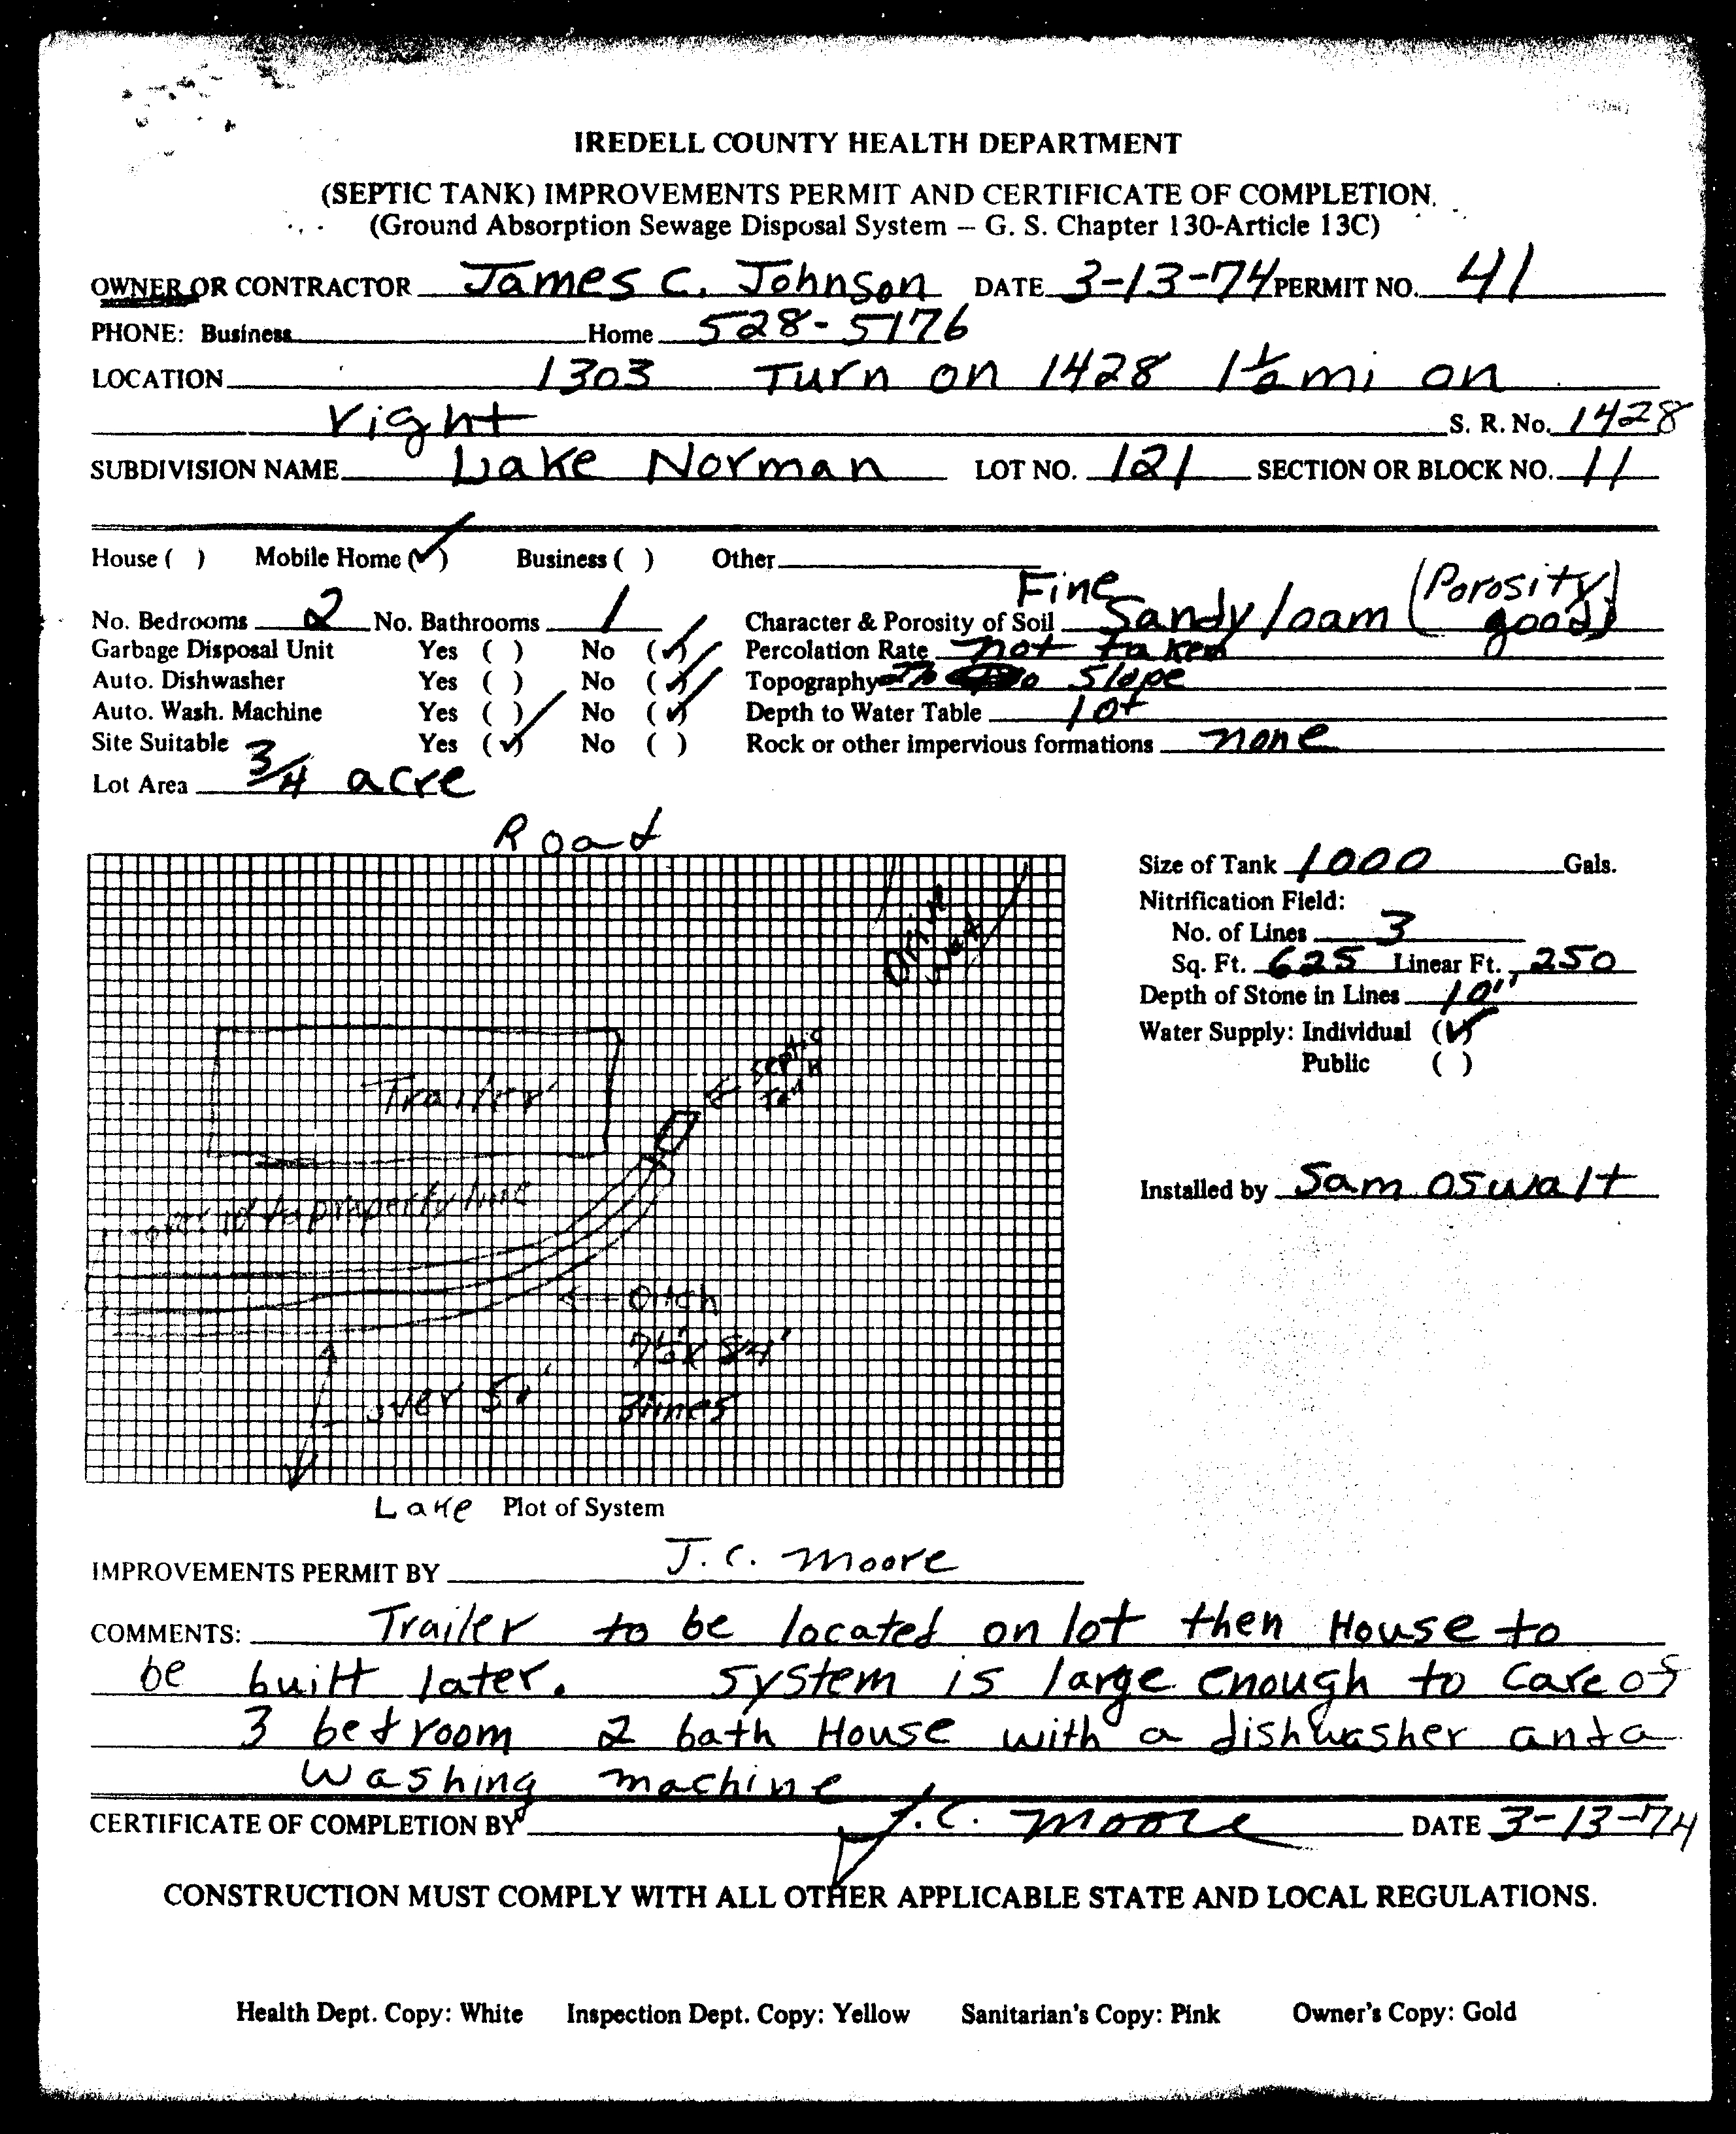 IREDELL COUNTY HEALTH DEPARTMENT
(SEPTIC TANK) IMPROVEMENTS PERMIT AND CERTIFICATE OF COMPLETION.
(Ground Absorption Sewage Disposal System – G. S. Chapter 130-Article 13C)
OWNER OR CONTRACTOR James C. Johnson DATE 3-13-74 PERMIT NO. 41
PHONE: Business Home 528-5176
LOCATION 1303 Turn on 1428 1½ mi on
right S. R. No. 1428
SUBDIVISION NAME Lake Norman LOT NO. 121 SECTION OR BLOCK NO. 11
House ( ) Mobile Home (✓) Business ( ) Other
No. Bedrooms 2 No. Bathrooms 1 Character & Porosity of Soil Fine Sandy loam (Porosity good)
Garbage Disposal Unit Yes ( ) No (✓) Percolation Rate not taken
Auto. Dishwasher Yes ( ) No (✓) Topography slope
Auto. Wash. Machine Yes ( ) No (✓) Depth to Water Table
Site Suitable Yes (✓) No ( ) Rock or other impervious formations none
Lot Area 3/4 acre
Road
Drive way
Septic Tank
Trailer
to property line
Ditch
over 50'
3 lines
Lake Plot of System
Size of Tank 1000 Gals.
Nitrification Field:
No. of Lines 3
Sq. Ft. 625 Linear Ft. 250
Depth of Stone in Lines 10"
Water Supply: Individual (✓)
Public ( )
Installed by Sam Oswalt
IMPROVEMENTS PERMIT BY J. C. Moore
COMMENTS: Trailer to be located on lot then House to
be built later. System is large enough to care of
3 bedroom 2 bath House with a dishwasher and a
washing machine
CERTIFICATE OF COMPLETION BY J. C. Moore DATE 3-13-74
CONSTRUCTION MUST COMPLY WITH ALL OTHER APPLICABLE STATE AND LOCAL REGULATIONS.
Health Dept. Copy: White Inspection Dept. Copy: Yellow Sanitarian's Copy: Pink Owner's Copy: Gold